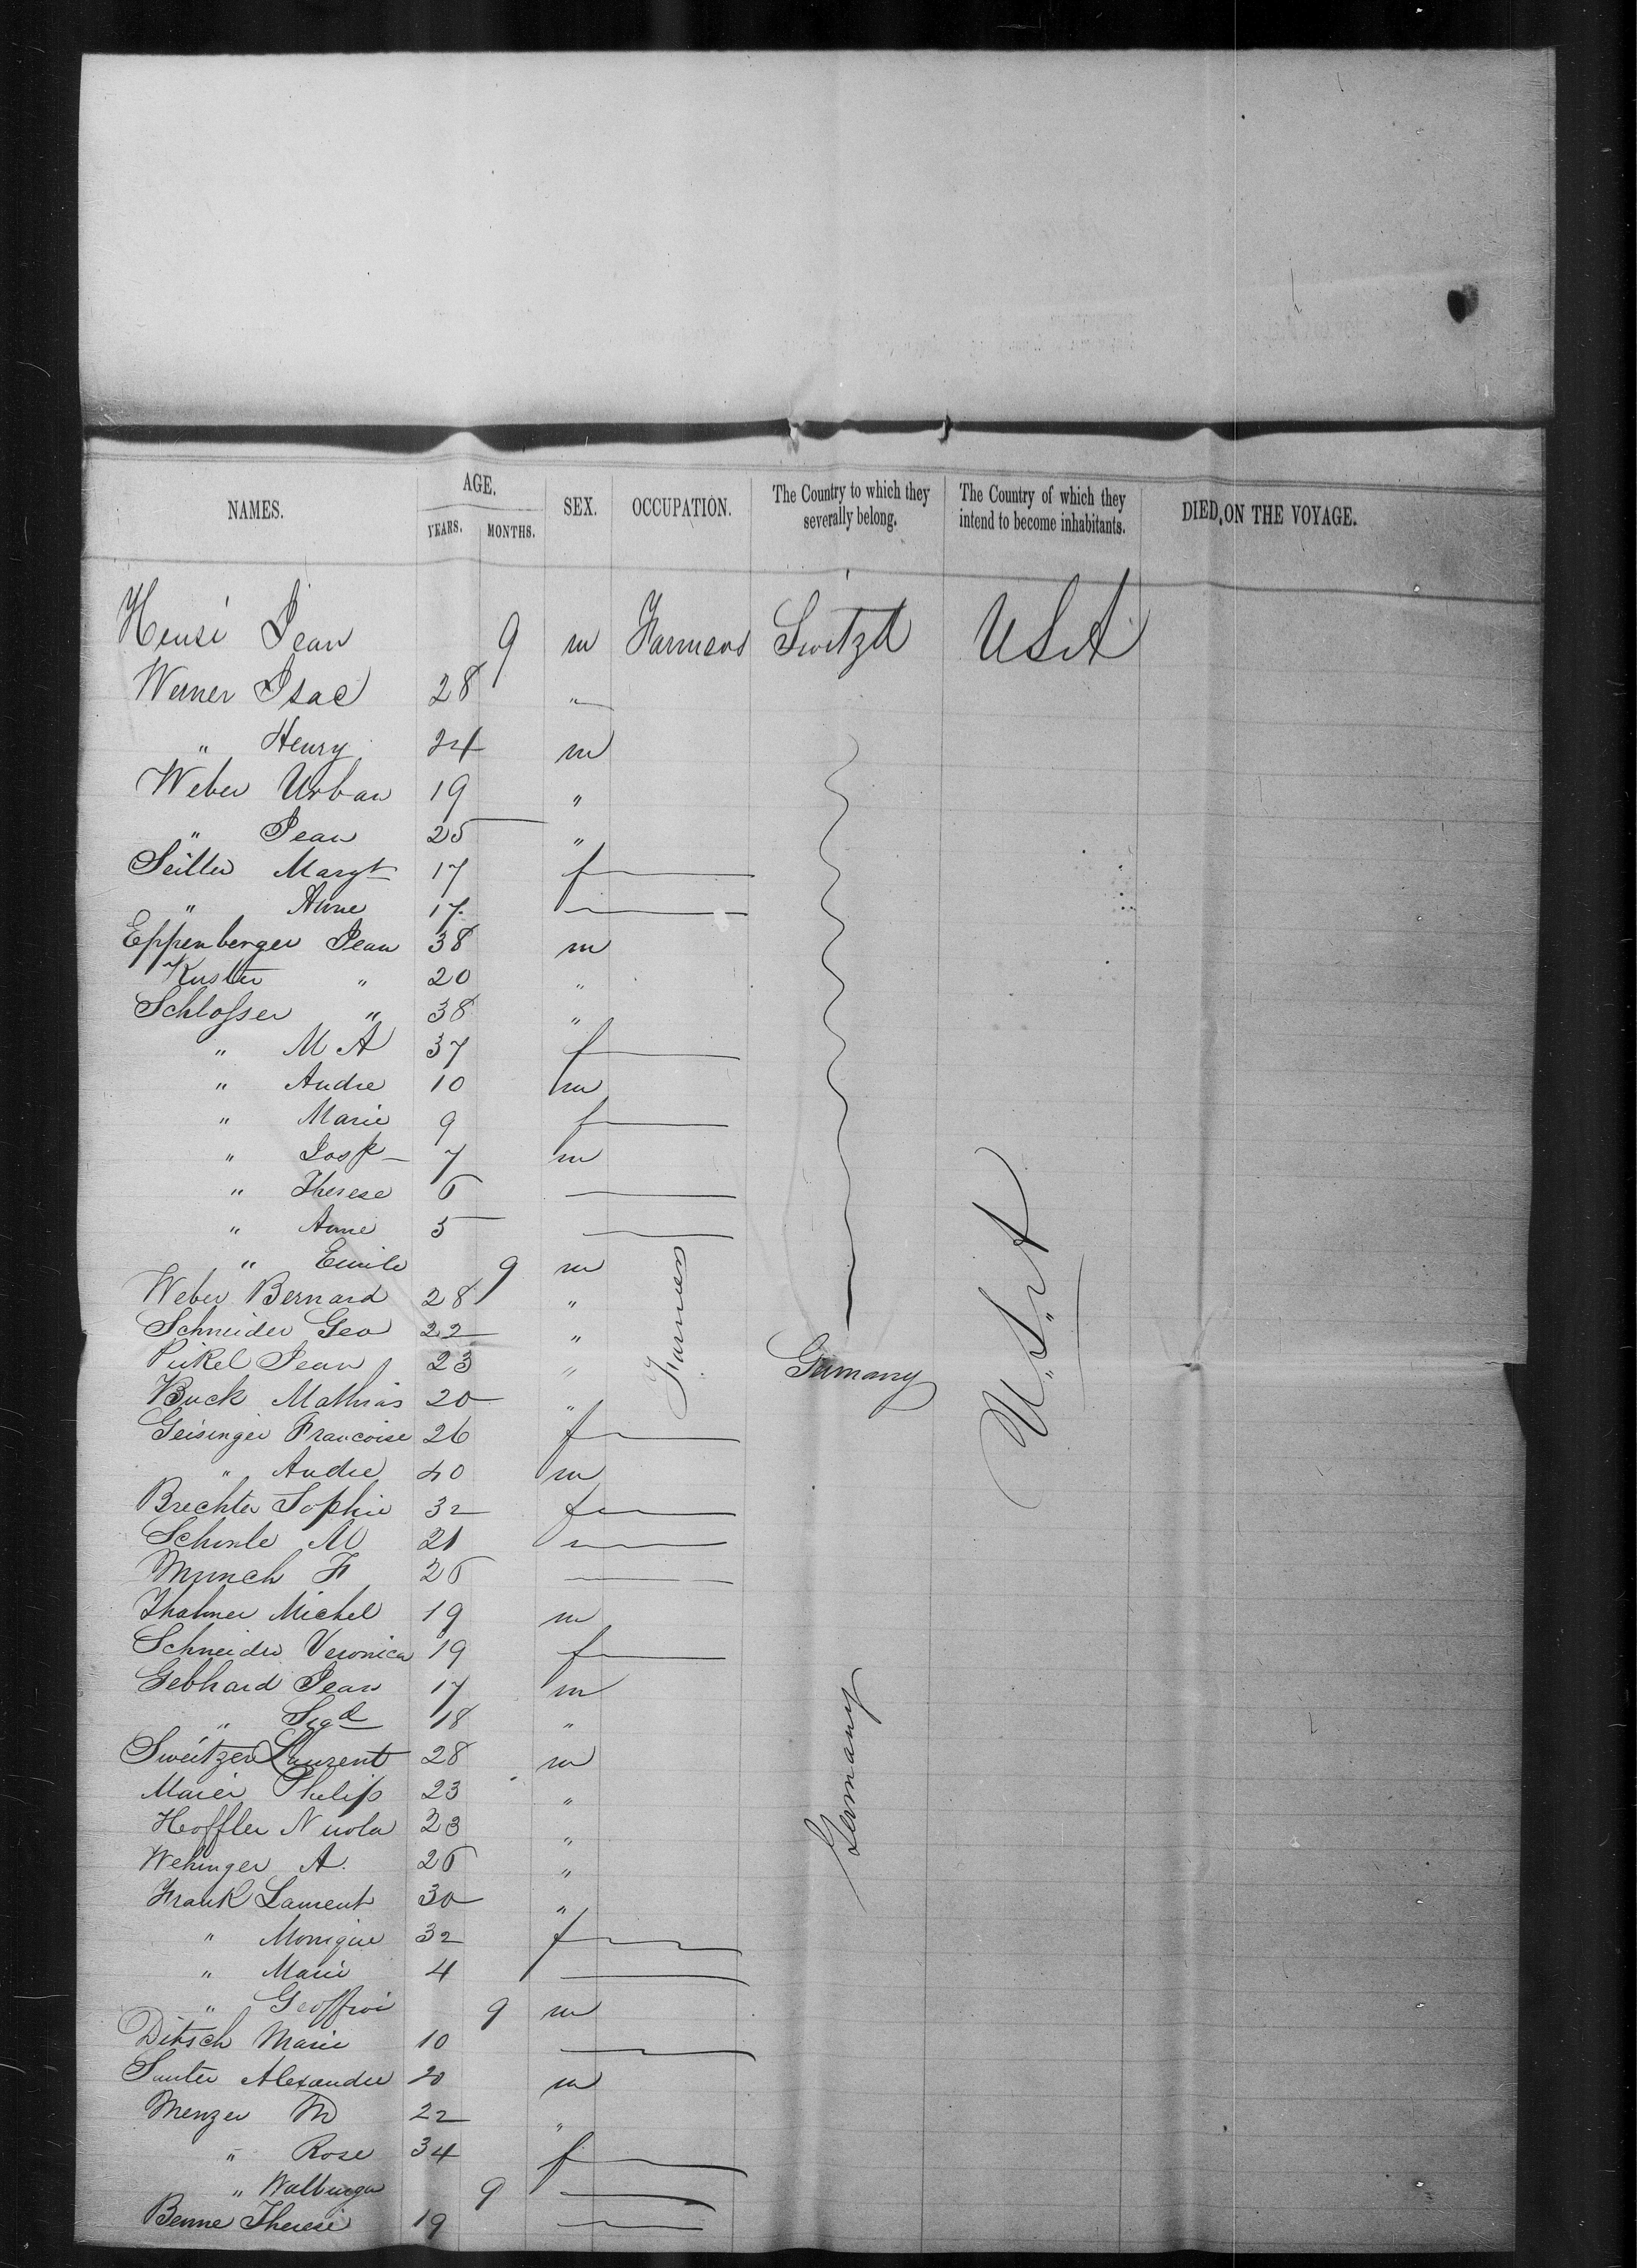 NAMES. AGE. SEX. OCCUPATION. The Country to which they severally belong. The Country of which they intend to become inhabitants. DIED ON THE VOYAGE.
YEARS. MONTHS.
Heusi Jean 9 m Farmers Switzd USA
Werner Isac 28 "
" Henry 24 m
Weber Urban 19 "
" Jean 25 "
Seiller Margt 17 f
" Anne 17
Eppenberger Jean 38 m
Kuster " 20 "
Schlosser " 38 "
" M A 37 f
" Andre 10 m
" Marie 9 f
" Josp 7 m
" Therese 6
" Anne 5
" Emile 9 m
Weber Bernard 28 "
Schneider Geo 22 "
Pickel Jean 23 " Farmers Germany U.S.A
Buck Mathias 20 "
Geisinger Francoise 26 f
" Andre 40 m
Brechter Sophie 32 f
M 21
Munch F 26
Thalmer Michel 19 m
Schneider Veronica 19 f
Gebhard Jean 17 m
" 18 "
Sweitzer Laurent 28 m
Maier Philip 23 " Germany
Hoffler Nicola 23 "
Wehinger A. 26 "
Frank Laurent 30 "
" Monique 32 f
" Marie 4
" Geoffroi 9 m
Ditsch Marie 10
Suter Alexandre 20 m
Menzer M 22 "
" Rose 34 f
" Walburga 9
Benne Therese 19